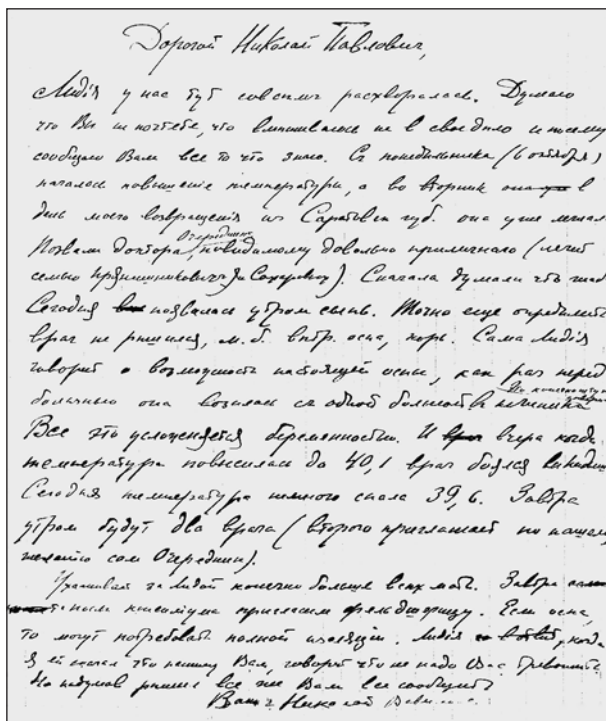 Дорогой Николай Павлович,
Лидія у нас тут совсѣмъ расхворалась. Думаю
что Вы не почтете, что вмѣшиваюсь не в свое дѣло и посему
сообщаю Вам все то что знаю. Съ понедѣльника (6 октября)
началось повышеніе температуры, а во вторник она в
день моего возвращенія из Саратовск губ. она уже лежала
Позвали доктора Очередина, повидимому довольно приличнаго (лечит
семью и Сахаровых). Сначала думали что
Сегодня появилась утром сыпь. Точно еще опредѣлить
врач не рѣшился, м.б. вѣтр. оспа, корь. Сама Лидія
говорит о возможности настоящей оспы, как раз перед
болѣзнью она возилась съ одной больной
Все это усложняется беременностью. И вчера когда
температура повысилась до 40,1 врач боялся выкидыша
Сегодня температура немного спала 39,6. Завтра
утром будут два врача (второго приглашает по нашему
желанію сам Очередин).
Ухаживает за Лидой конечно больше всех мать. Завтра
послѣ консиліума пригласим фельдшерицу. Если оспа,
то могут потребовать полной изоляціи. Лидія когда
я ей сказал что напишу Вам, говорит что не надо Вас тревожить.
Но подумав рѣшил все же Вам все сообщить
Ваш Николай